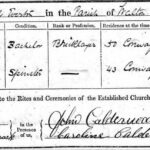 Everton in the Parish of Walton
Condition. Rank or Profession. Residence at the time
Bachelor Bricklayer 57 Conway
Spinster 43 Conway
to the Rites and Ceremonies of the Established Church
in the Presence of us, John Calderwood
Caroline Calder